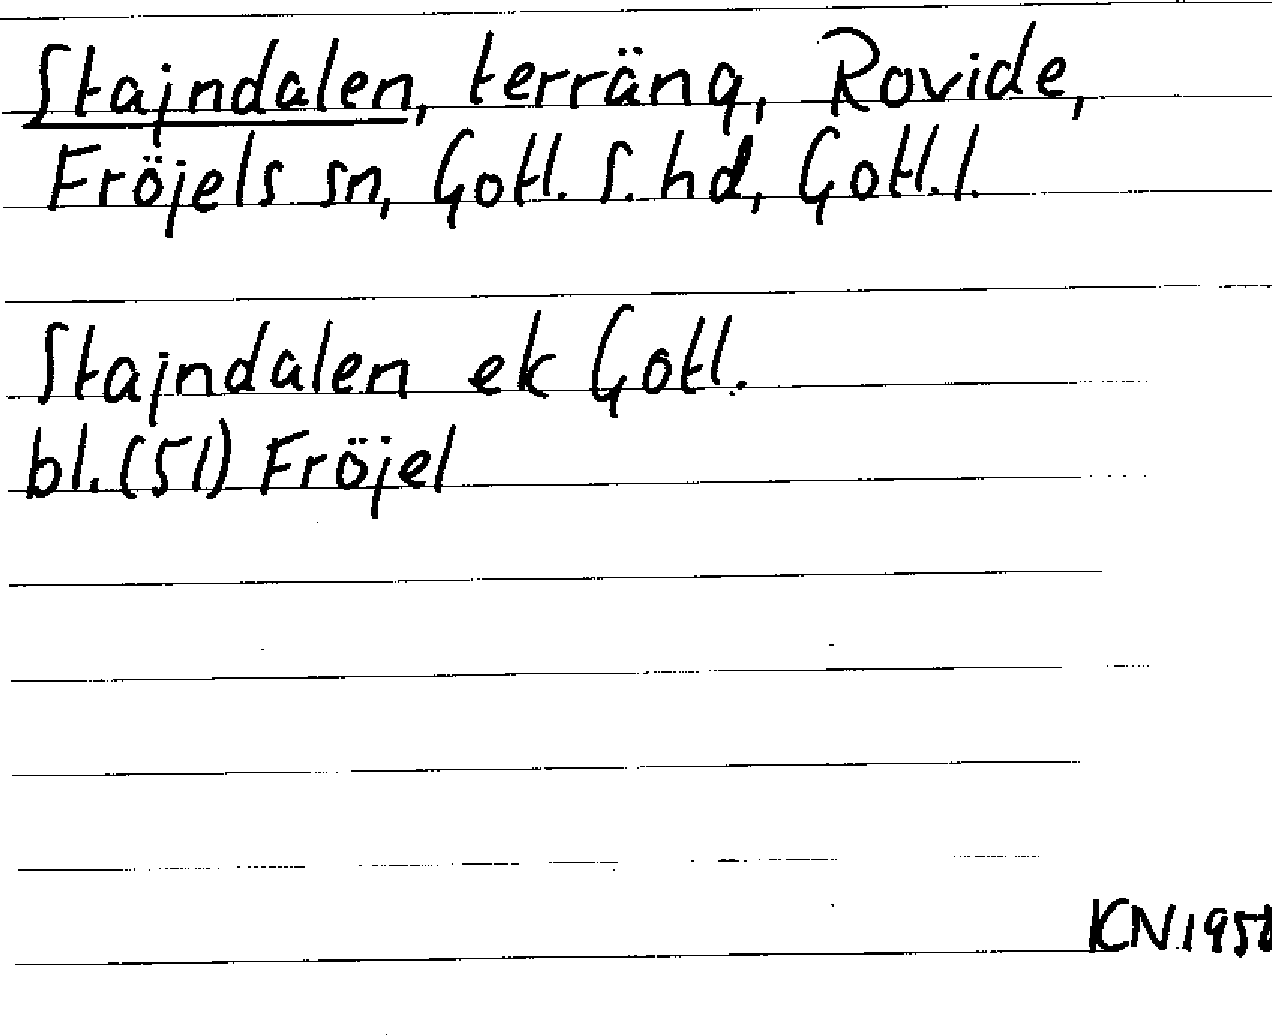 Stajndalen, terräng, Rovide,
Fröjels sn, Gotl. S. hd, Gotl. l.
Stajndalen ek Gotl.
bl. (51) Fröjel
KN